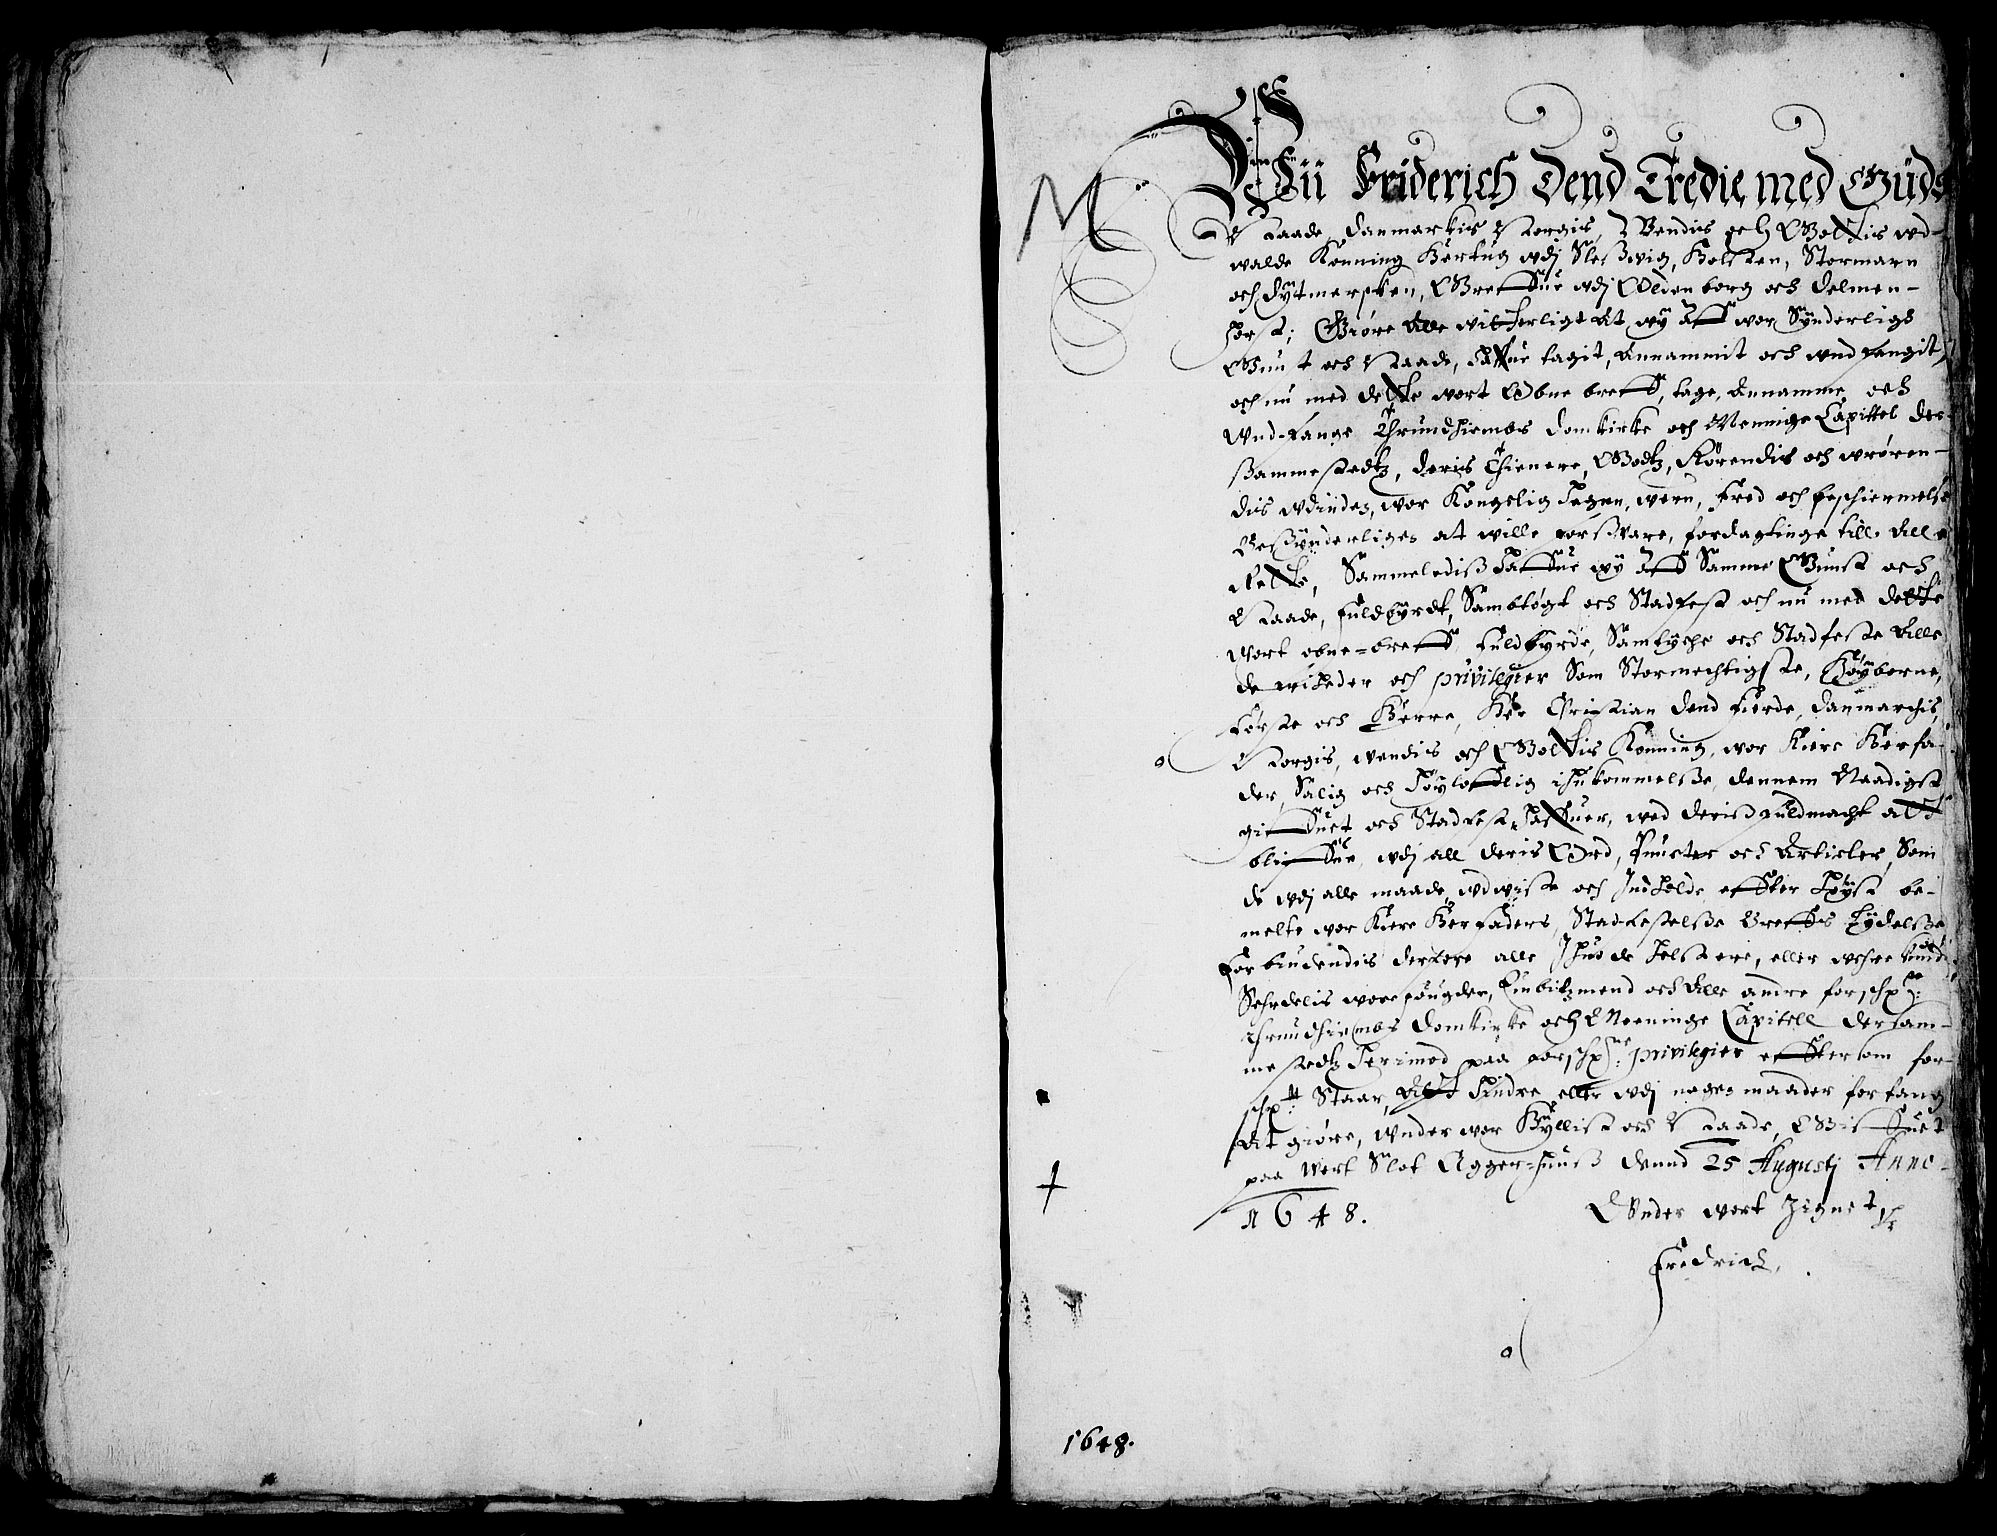 M
Wii Friderich Dend Tredie med Gūds
Naade, Danmarkis Norgis, Wendis och Gottis wd-
walde Konning Hertug wdj Sleswig, Holsten, Stormarn
och Dÿtmersken, Greffue wdj Oldenborg och Delmen-
horst; Giøre Alle witterligt At wÿ Aff wor Sÿnderlige
Gunst och Naade, haffue tagit, Annammit och wndfangit,
och nū med dette wort Obne breff, tage, Annamme och
Wnd-fange Thrundhiembs Domkirke och Menninge Capittel der-
sammestedtz, deris Thienere, Godtz, Rørendis och wrøren-
dis wdinden, wor Kongelig hegen, wern, Fred och beschermelse
Besÿnderligen at wille forsware, fordagtinge till Alle
Rette, Sammelediss haffue wÿ Aff Samme Gūnst och
Naade, fuldbÿrdt, Sambtøgt och Stadfest och nū med dette
wort obne-breff fuldbÿrde, Samtÿche och Stadfeste Alle
de friheder och privilegier Som Stormechtigste, Høÿborne,
Første och Herre, Her Christian Dend Fierde, Danmarchis,
Norgis, wendis och Gottis Konning, wor Kiere Herfa-
der, Salig och høÿloflig ihukommelse, dennem Naadigst
giffuet och Stadfest haffuer, wed deris fuldmacht att
bliffue wdj all deris Ord, Puncter och Articler, Som
de wdj alle maade wdwise och Indholde effter høÿst be-
melte wor Kiere Herfaders, Stadfestelse Breffs Lÿdelse,
Forbiudendis derfore alle Ihuo de helst ere, eller were kunde
Serdelis wore fougder, Embitzmend och Alle andre forschpne:
Thrundhiembs Domkirke och Menninge Capitell dersam-
mestedtz herimod paa forschpne: privilegier efftersom for-
schptt: Staar, Att hindre eller wdj nogen maader forfang
At giøre, wnder wor Hÿllist och Naade, Giffuet
paa wort Slot Aggers-huuss dennd 25 Augustj Anno-
1648. Wnder wort Zignet
Fredrich.
1648.